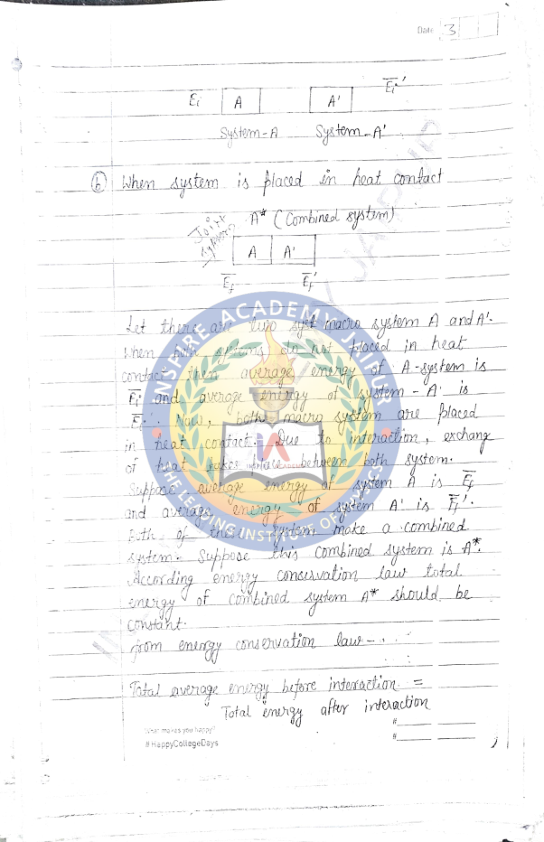 Date 3
Ei A A' Ei'
System-A System-A'
(b) When system is placed in heat contact
Joint system A* (Combined system)
A A'
Ef Ef'
Let there are two syst macro system A and A'.
When both systems are not placed in heat
contact then average energy of A-system is
Ei and average energy of system - A' is
Ei'. Now, both macro system are placed
in heat contact. Due to interaction, exchange
of heat takes place between both system.
Suppose average energy of system A is Ef
and average energy of system A' is Ef'.
Both of this system make a combined
system. Suppose this combined system is A*.
According energy conservation law total
energy of combined system A* should be
constant.
from energy conservation law - . .
Total average energy before interaction =
Total energy after interaction
What makes you happy?
# HappyCollegeDays
#
#
INSPIRE ACADEMY JAIPUR
THE LEADING INSTITUTE OF
iA